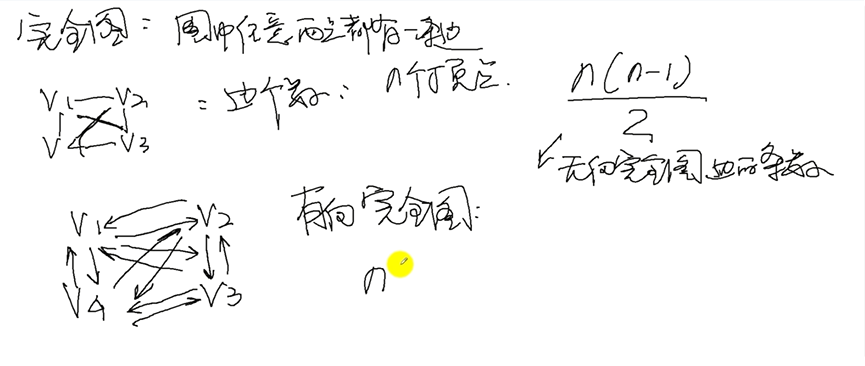 完全图：图中任意两点都有一条边
V1 V2
V4 V3
：边个数：n个顶点.
n(n-1)
2
无向完全图边的条数
V1 V2
V4 V3
有向完全图：
n